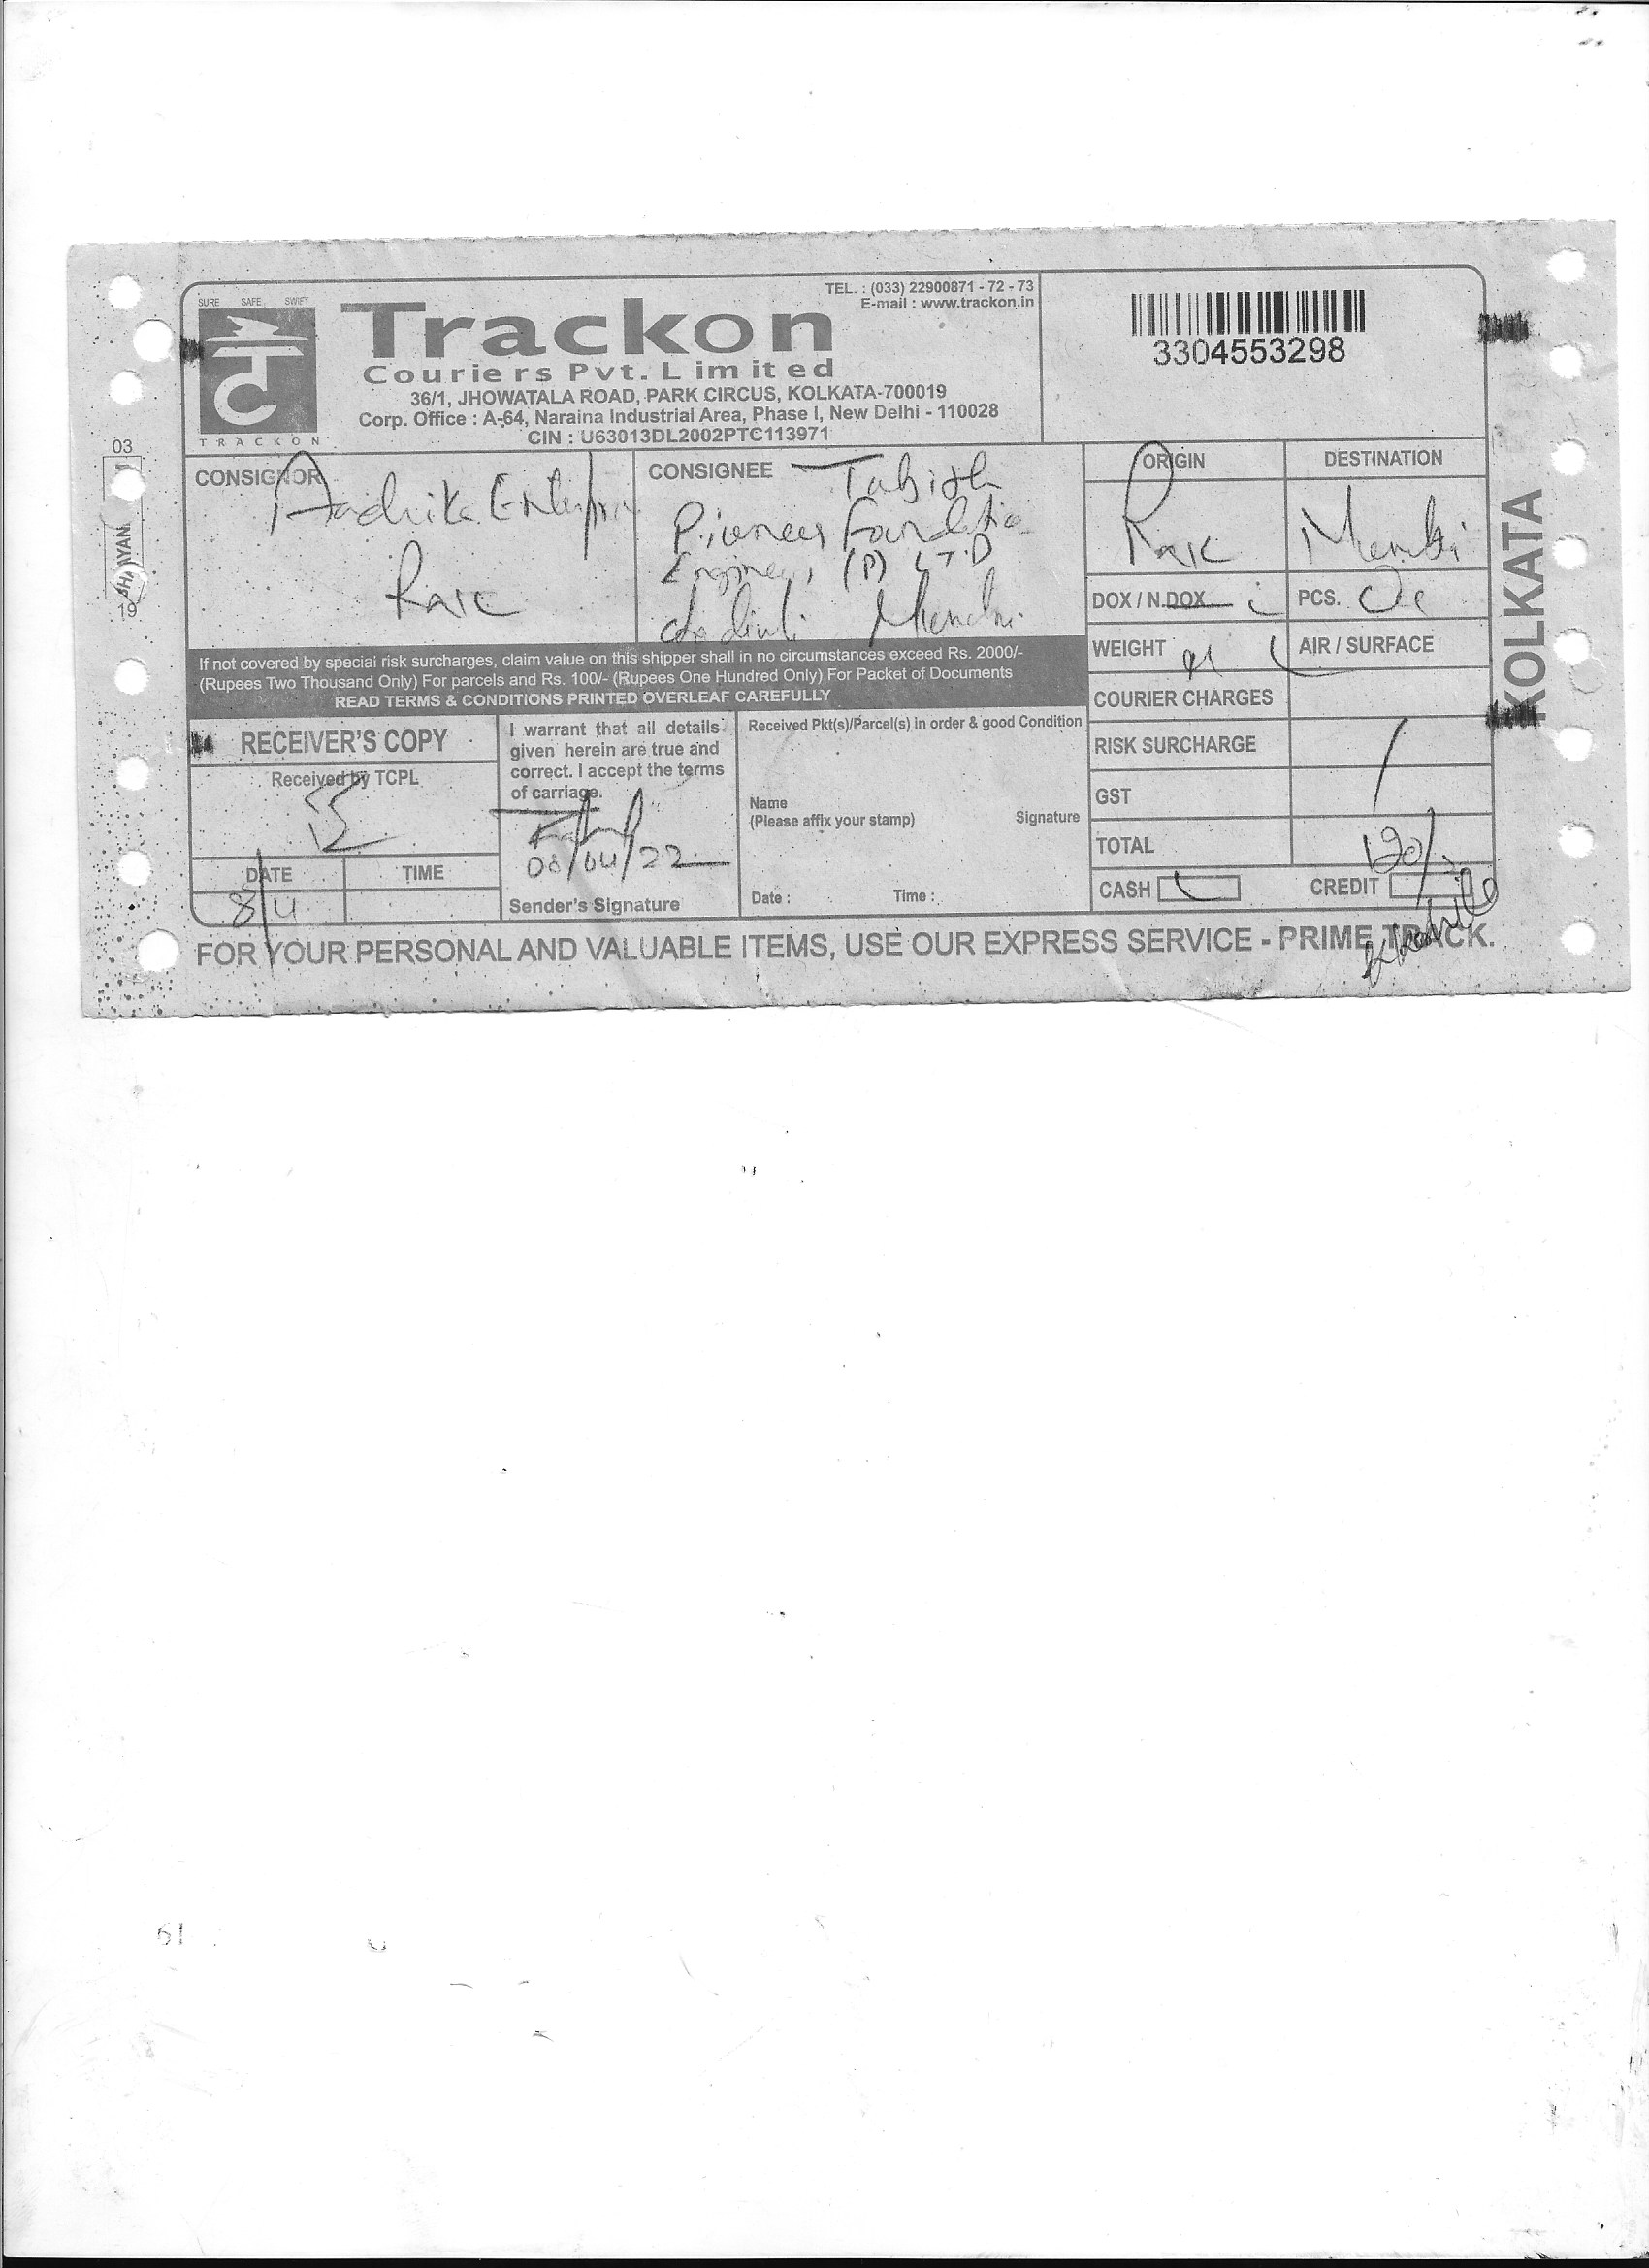 TEL. : (033) 22900871 - 72 - 73
E-mail : www.trackon.in
SURE SAFE SWIFT
Trackon
Couriers Pvt. Limited
36/1, JHOWATALA ROAD, PARK CIRCUS, KOLKATA-700019
Corp. Office : A-64, Naraina Industrial Area, Phase I, New Delhi - 110028
CIN : U63013DL2002PTC113971
TRACKON
3304553298
03
19
KOLKATA
CONSIGNOR
Aadrika
CONSIGNEE
Tabish
Pioneer Foundation
(P) LTD
ORIGIN
DESTINATION
Mumbai
DOX / N.DOX
PCS.
WEIGHT
AIR / SURFACE
COURIER CHARGES
RISK SURCHARGE
GST
TOTAL
120/-
CASH
CREDIT
If not covered by special risk surcharges, claim value on this shipper shall in no circumstances exceed Rs. 2000/-
(Rupees Two Thousand Only) For parcels and Rs. 100/- (Rupees One Hundred Only) For Packet of Documents
READ TERMS & CONDITIONS PRINTED OVERLEAF CAREFULLY
RECEIVER'S COPY
Received by TCPL
DATE
TIME
8/4
I warrant that all details
given herein are true and
correct. I accept the terms
of carriage.
08/04/22
Sender's Signature
Received Pkt(s)/Parcel(s) in order & good Condition
Name
(Please affix your stamp)
Signature
Date :
Time :
FOR YOUR PERSONAL AND VALUABLE ITEMS, USE OUR EXPRESS SERVICE - PRIME TRACK.